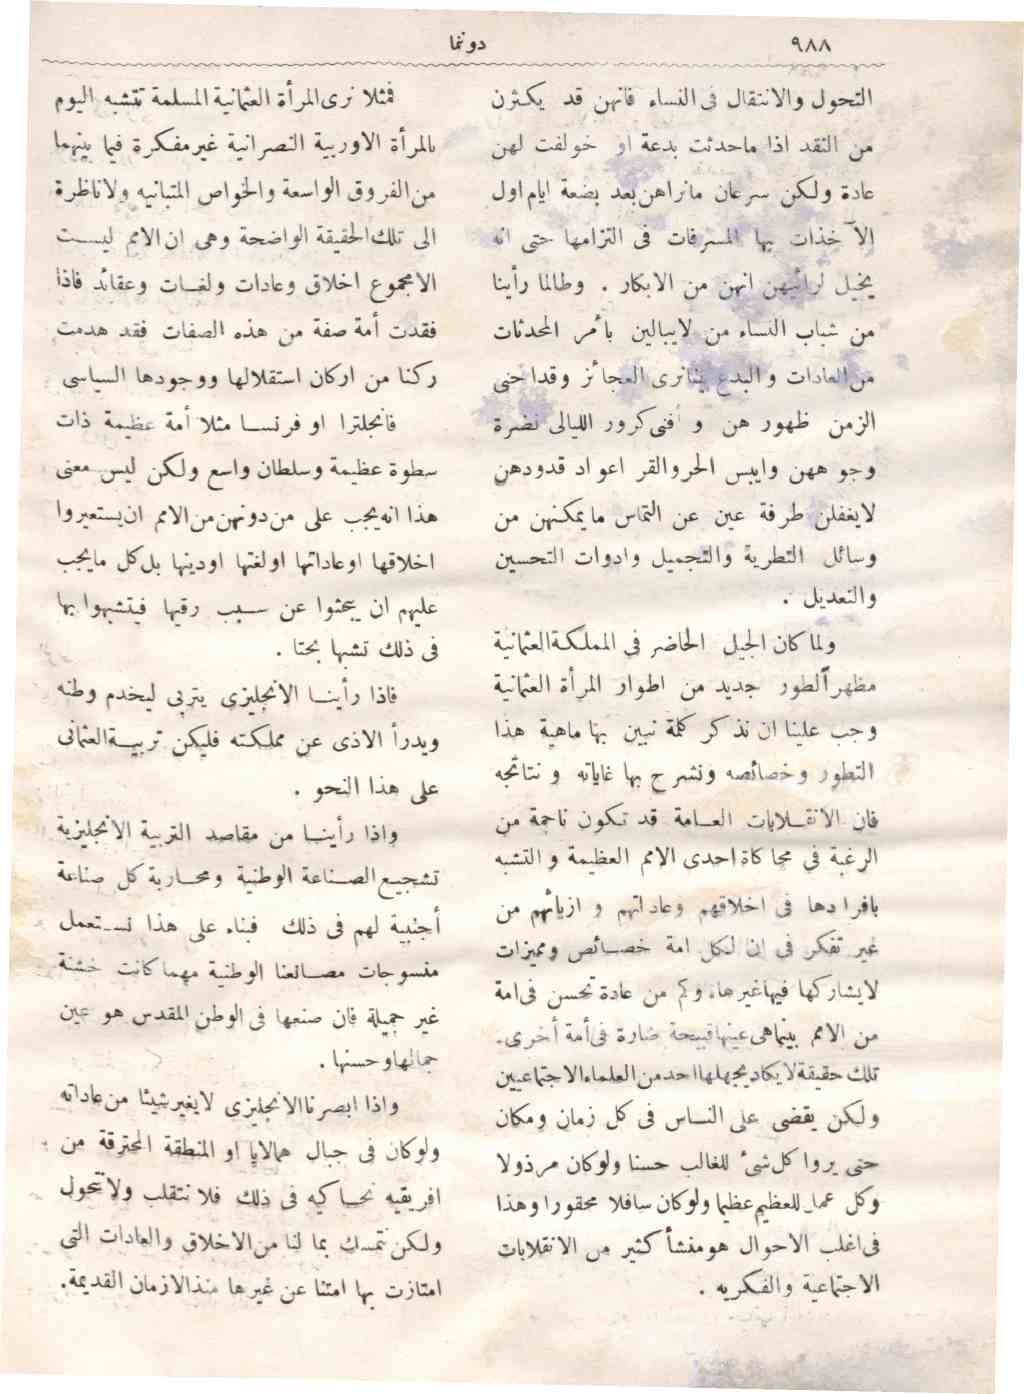 ٩٨٨
دونما
التحول والانتقال فى النساء فانهن قد يكثرن
من النقد اذا ماحدثت بدعة او خولفت لهن
عادة ولكن سرعان مانراهن بعد بضعة ايام اول
الآخذات بها المسرفات فى التزامها حتى انه
يخيل لرائيهن انهن من الابكار . وطالما رأينا
من شباب النساء من لايبالين بأمر المحدثات
من العادات والبدع بينانرى العجائز وقداحنى
الزمن ظهور هن و أفنى كرور الليالى نضرة
وجو ههن وايبس الحر والقر اعواد قدودهن
لايغفلن طرفة عين عن التماس مايمكنهن من
وسائل التطرية والتجميل وادوات التحسين
والتعديل .
ولما كان الجيل الحاضر فى المملكة العثمانية
مظهراً لطور جديد من اطوار المرأة العثمانية
وجب علينا ان نذكر كلمة نبين بها ماهية هذا
التطور وخصائصه ونشرح بها غاياته ونتائجه
فان الانقلابات العامة قد تكون ناجمة من
الرغبة فى محاكاة احدى الامم العظيمة والتشبه
بافرادها فى اخلاقهم وعاداتهم و ازيائهم من
غير تفكر فى ان لكل امة خصائص ومميزات
لايشاركها فيهاغيرها، وكم من عادة تحسن فى امة
من الامم بينماهى عينهاقبيحة ضارة فى أمة أخرى.
تلك حقيقة لا يكاد يجهلها احد من العلماء الاجتماعيين
ولكن يقضى على الناس فى كل زمان ومكان
حتى يروا كل شىء للغالب حسنا ولوكان مرذولا
وكل عمل للعظيم عظيما ولوكان سافلا محقورا وهذا
فى اغلب الاحوال هومنشأ كثير من الانقلابات
الاجتماعية والفكريه .
فمثلا نرى المرأة العثمانية المسلمة تتشبه اليوم
بالمرأة الاوربية النصرانية غيرمفكرة فيما بينهما
من الفروق الواسعة والخواص المتبانيه ولاناظرة
الى تلك الحقيقة الواضحة وهى ان الامم ليست
الامجموع اخلاق وعادات ولغات وعقائد فاذا
فقدت أمة صفة من هذه الصفات فقد هدمت
ركنا من اركان استقلالها ووجودها السياسى
فانجلترا او فرنسا مثلا أمة عظيمة ذات
سطوة عظيمة وسلطان واسع ولكن ليس معنى
هذا انه يجب على من دونهن من الامم ان يستعيروا
اخلاقها اوعاداتها اولغتها اودينها بل كل مايجب
عليهم ان يبحثوا عن سبب رقيها فيتشبهوا بها
فى ذلك تشبها بحتا .
فاذا رأينا الانجليزى يتربى ليخدم وطنه
ويدرأ الاذى عن مملكته فليكن تربية العثمانى
على هذا النحو .
واذا رأينا من مقاصد التربية الانجليزية
تشجيع الصناعة الوطنية ومحاربة كل صناعة
أجنبية لهم فى ذلك فبناء على هذا نستعمل
منسوجات مصانعنا الوطنية مهما كانت خشنة
غير جميلة فان صنعها فى الوطن المقدس هو عين
جمالهاوحسنها .
واذا ابصرنا الانجليزى لايغير شيئا من عاداته
ولوكان فى جبال همالايا او المنطقة المحترقة من
افريقيه نحاكيه فى ذلك فلا نتقلب ولانتحول
ولكن نتمسك بما لنا من الاخلاق والعادات التى
امتازت بها امتنا عن غيرها منذ الازمان القديمة.